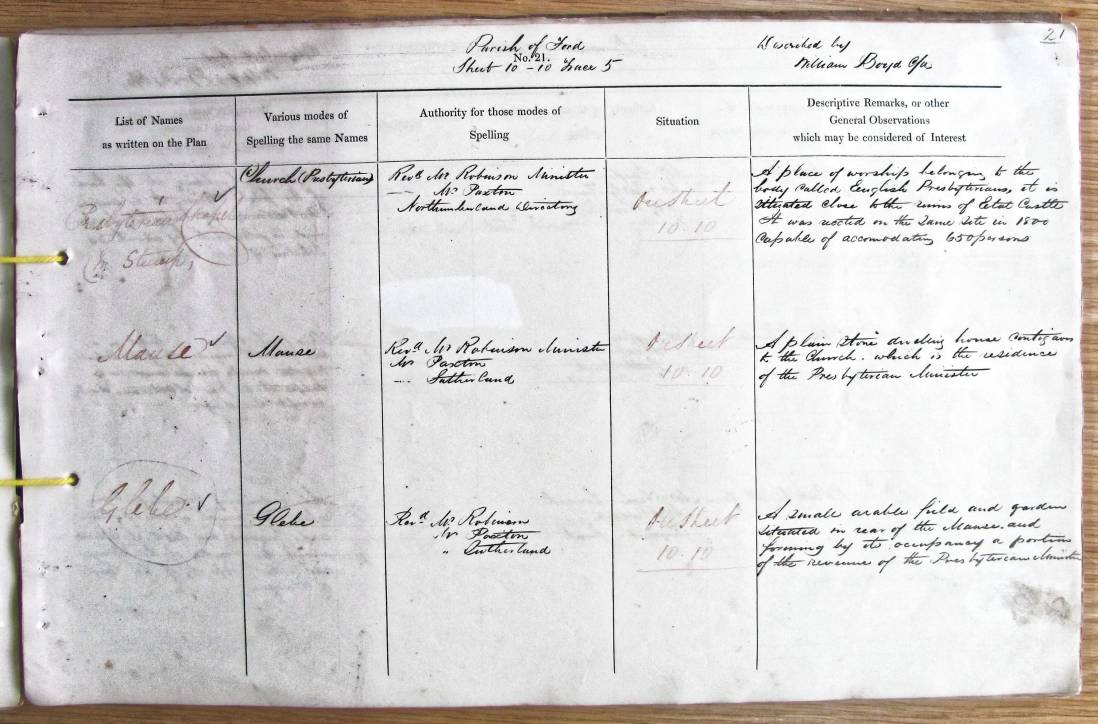 21
Parish of Ford
No. 21.
Sheet 10-10 Trace 5
Described by
William Boyd C/a
List of Names
as written on the Plan
Various modes of
Spelling the same Names
Authority for those modes of
Spelling
Situation
Descriptive Remarks, or other
General Observations
which may be considered of Interest
Presbyterian Chapel
(In Stump)
Church (Presbyterian)
Revd Mr Robinson Minister
Mr Paxton
Northumberland Directory
On Sheet
10.10
A place of worship belonging to the
body called English Presbyterians, it is
situated close to the ruins of Etal Castle
It was rected on the same site in 1800
Capable of accomodating 650 persons
Manse
Manse
Revd Mr Robinson Minister
Mr Paxton
Sutherland
On Sheet
10.10
A plain stone dwelling house contigious
to the Church. which is the residence
of the Presbyterian Minister
Glebe
Glebe
Revd Mr Robinson
Mr Paxton
" Sutherland
On Sheet
10.10
A small arable field and garden
situated in rear of the Manse. and
forming by its occupancy a portion
of the revenue of the Presbyterian Minister